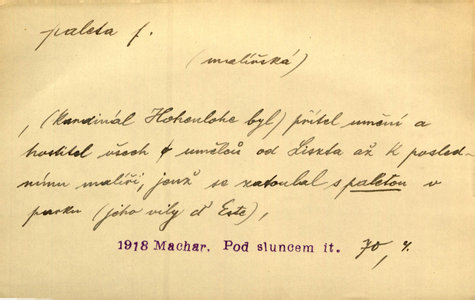 paleta f.
(malířská)
, (Kardinál Hohenlohe byl) přítel umění a
hostitel všech umělců od Liszta až k posled-
nímu malíři, jenž se zatoulal s paletou v
parku (jeho vily d' Este),
1918 Machar. Pod sluncem it. 70,